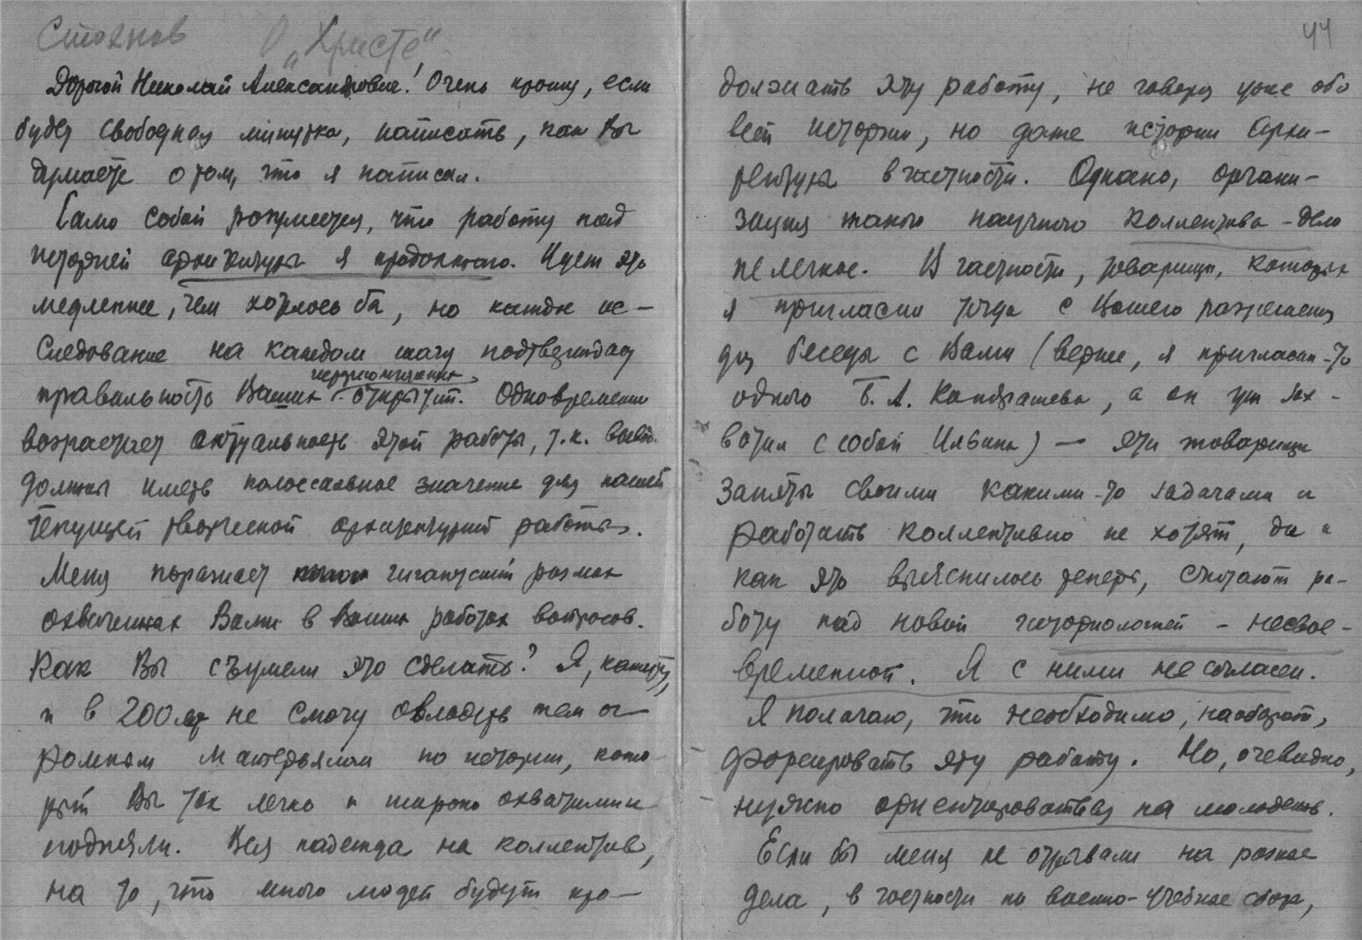 Стоянов О „Христе"
Дорогой Николай Александрович! Очень прошу, если
будет свободная минутка, написать, как Вы
думаете о том, что я написал.
Само собой разумеется, что работу над
историей архитектуры я продолжаю. Идет это
медленнее, чем хотелось бы, но каждое ис-
следование на каждом шагу подтверждает
правильность Ваших открытий. Одновременно
возрастает актуальность этой работы, т.к. выводы
должны иметь колоссальное значение для нашей
текущей творческой архитектурной работы.
Меня поражает гигантский размах
охваченных Вами в Ваших работах вопросов.
Как Вы съумели это сделать? Я, кажется,
и в 200 лет не смогу овладеть тем ог-
ромным материалом по истории, кото-
рый Вы так легко и широко охватили и
подняли. Вся надежда на коллектив,
на то, что много людей будут про-
44
должать эту работу, не говоря уже обо
всей истории, но даже истории архи-
тектуры в частности. Однако, органи-
зация такого научного коллектива – дело
не легкое. В частности, товарищи, которых
я пригласил тогда с Вашего разрешения
для беседы с Вами (вернее, я пригласил-то
одного Б. А. Кондрашева, а он уж зах-
ватил с собой Ильина) — эти товарищи
заняты своими какими-то задачами и
работать коллективно не хотят, да и
как это выяснилось теперь, считают ра-
боту над новой историологией – несвое-
временной. Я с ними не согласен.
Я полагаю, что необходимо, наоборот,
форсировать эту работу. Но, очевидно,
нужно ориентироваться на молодежь.
Если бы меня не отрывали на разные
дела, в частности на военно-учебные сборы,